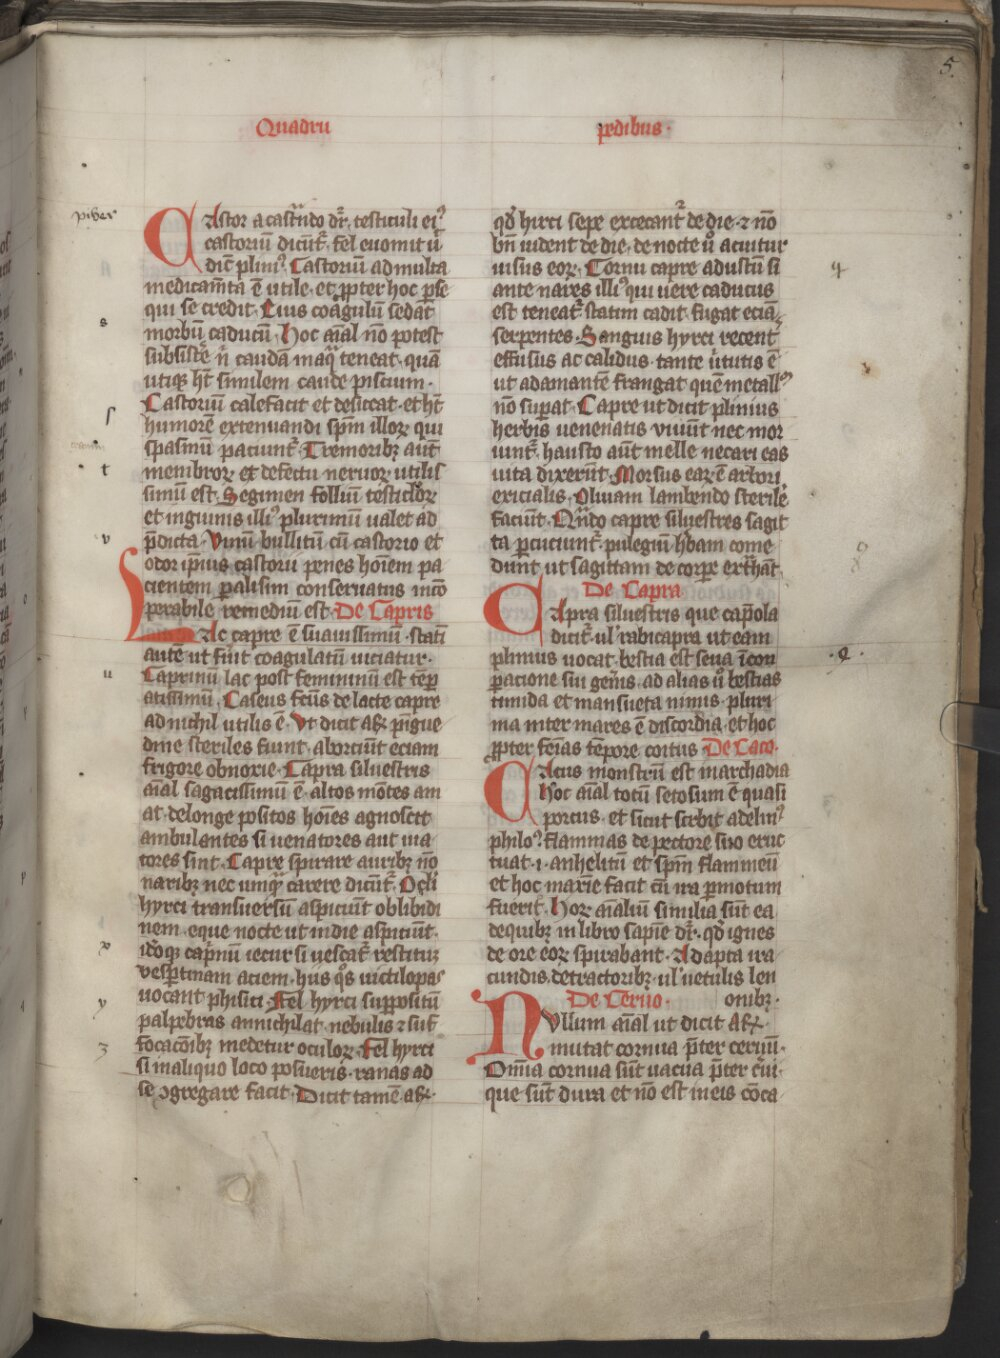 5.
Quadru pedibus·
piber
CAstor a castrãdo dr̃. testiculi ei⁹
castoriũ dicũt̃. fel euomit ũ
dic̃ plini⁹. Castoriũ ad multa
medicam̃ta ẽ utile. et ꝓpter hoc ꝑse
qui se credit. Eius coãgulũ sedat
morbũ caducũ. Hoc aĩal nõ potest
subsistẽ ñ caudã in aq̃ teneat. quã
utiqꝫ hñt similem caude piscium.
Castoriũ calefacit et desiccat. et hñt
humorẽ extenuandi spm̃ illoꝝ qui
spasmũ paciunt̃. Tremoribꝫ aũt
membroꝝ et defectu neruoꝝ utilis
simũ est. Segimen folliũ testicl̃oꝝ
et inguinis illi⁹ plurimũ ualet ad
p̃dicta. Vinũ bullitũ cũ castorio et
odor ip̃ius castorii penes hoĩem pa
cientem ꝑalisim conseruatus incõ
ꝑabile remediũ est. De Capris
LAc capre ẽ suauissimũ. statĩ
autẽ ut fũit coagulatũ uiciatur.
Caprinũ lac post femininũ est tẽp
atissimũ. Caseus fc̃us de lacte capre
ad nichil utilis ẽ. Vt dicit aꝶ. p̃ngue
dine steriles fiunt. aborciũt eciam
frigore obnoxie. Capra siluestris
aĩal sagacissimũ ẽ. altos mõtes am
at. de longe positos hoĩes agnoscit
ambulantes si uenatores aut uia
tores sint. Capre spirare auribꝫ nõ
naribꝫ nec umq̃ carere dicũt̃. Oc̃li
hyrci transuersũ aspiciũt oblibidi
nem. eque nocte ut in die aspiciũt.
id̃oqꝫ cap̃nũ iecur si uescat̃ restituit
vesꝑtinam aciem. hiis q̃s nictilopas
uocant phisici. Fel hyrci suppositũ
palpebras annichilat. nebulis ⁊ suf
focac̃oĩbꝫ medetur oculoꝝ. Fel hyrci
si in aliquo loco posũeris. ranas ad
se ꝯgregare facit. Dicit tamẽ aꝶ.
qd̃ hirci sepe excecant̃ de die. ⁊ nõ
bñ uident de die. de nocte ũo acuitur
uisus eoꝝ. Cornu capre adustũ si
ante nares illi⁹ qui uere caducus
est teneat̃ statim cadit. fugat eciã
serpentes. Sanguis hyrci recent
effusus ac calidus. tante ũtutis ẽ
ut adamantẽ frangat quẽ metall⁹
nõ suꝑat. Capre ut dicit plinius
herbis uenenatis viuũt nec mor
iunt̃. hausto aũt melle necari eas
uita dixerũt. Morsus eaꝝ ẽ arbori
exicialis. Oliuam lambendo sterilẽ
faciũt. Qñdo capre siluestres sagit
ta ꝑcuciunt̃. pulegiũ hẽbam come
dunt ut sagittam de corꝑe extᷓhant.
De Capra
CApra siluestris que cap̃ola
dicit̃. ul' rabicapra ut eam
plinius uocat. bestia est seua ĩcon
ꝑacione sui gen̾is. ad alias ũo bestias
timida et mansueta nimis. pluri
ma inter mares ẽ discordia. et hoc
ꝓpter fem̃as tẽpore coitus. De Caco.
CAcus monstrũ est in archadia
hoc aĩal totũ setosum ẽ quasi
porcus. et sicut sc̾bit adelin⁹
philo⁹. flammas de pectore suo eruc
tuat .i. anhelitũ et spm̃ flammeũ
et hoc maxĩe facit cũ ira ꝑmotum
fuerit. Hoꝝ aĩaliũ similia sũt ea
de quibꝫ in libro sapĩe dr̃. qd̃ ignes
de ore eoꝝ spirabant. Adapta ira
cundis. detractoribꝫ. ul' uetulis len
De Ceruo. onibꝫ.
NVllum aĩal ut dicit aꝶ.
mutat cornua p̃ter ceruũ.
Om̃ia cornua sũt uacua p̃ter c̾ui.
que sũt dura et nõ est in eis cõca
s
ſ
t
v
u
x
y
z
q